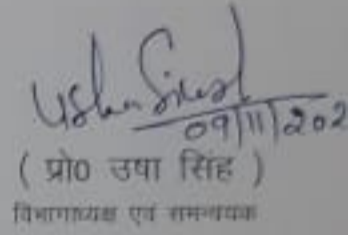 Usha Singh
09/11/202
( प्रो0 उषा सिंह )
विभागाध्यक्ष एवं समन्वयक